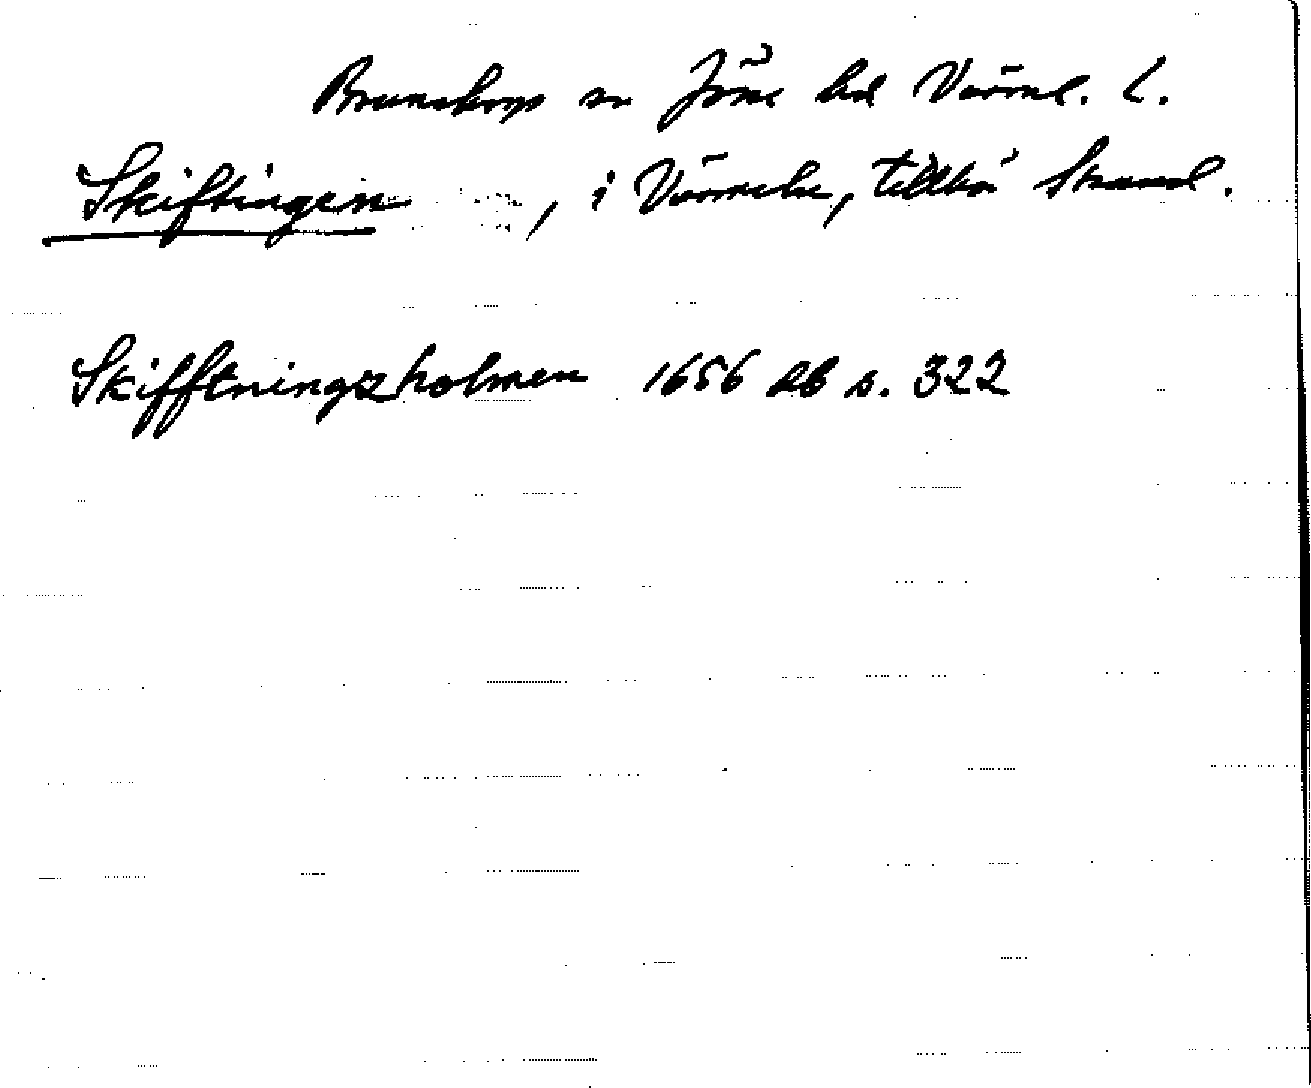 Brunskogs sn Jösse hd Värml. L.
Skiftingen , i Värmeln, tillhör Strand.
Skifftningzholmen 1656 Ab s. 322